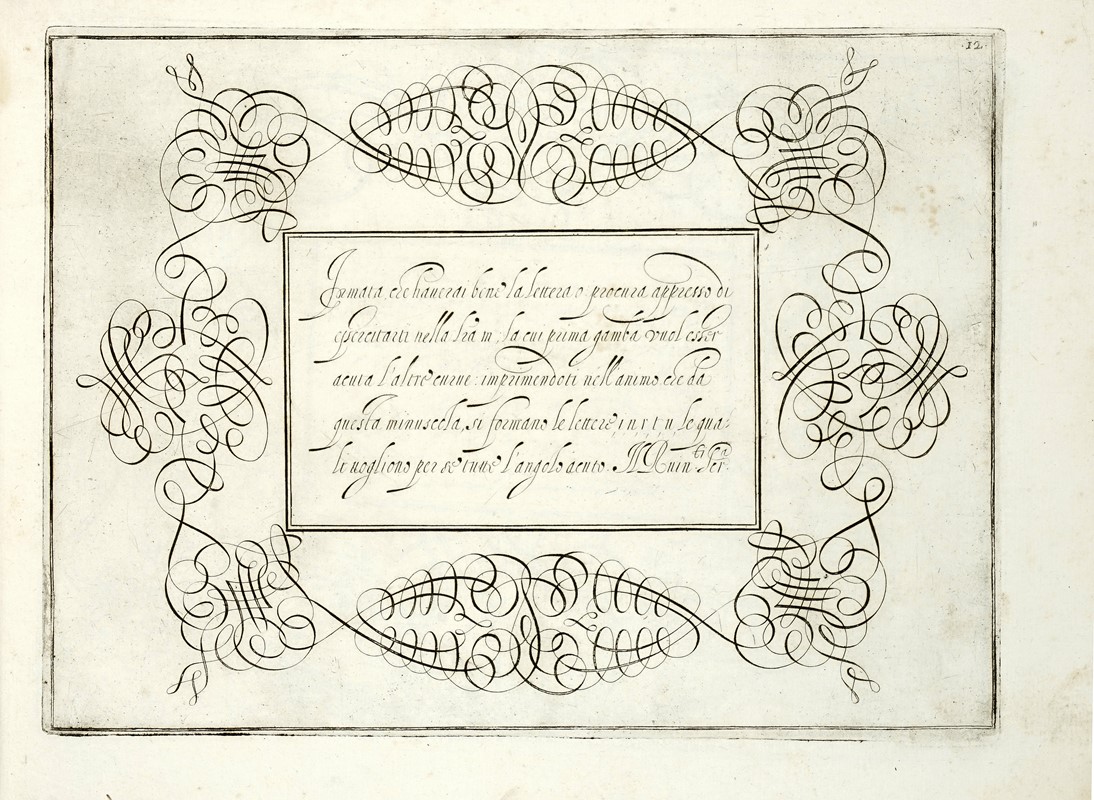 12
Formata che haverai bene la lettera o procura appresso di
esercitarti nella lrã m, la cui prima gamba vuol esser
acuta l'altre curve: imprimendoti nell'animo che da
questa minuscola, si formano le lettere, i, n, r, t, u, le qua-
li vogliono per se tutte l'angolo acuto.